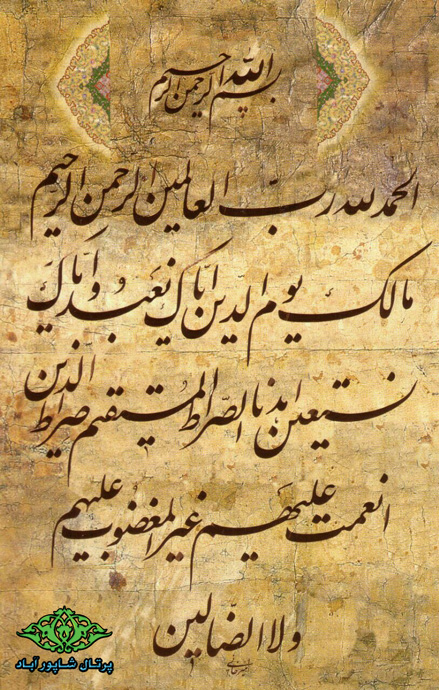 بسم الله الرحمن الرحیم
الحمد لله رب العالمین الرحمن الرحیم
مالک یوم الدین ایاک نعبد وایاک
نستعین اهدنا الصراط المستقیم صراط الذین
انعمت علیهم غیر المغضوب علیهم
ولا الضالین
پرتال شاپورآباد